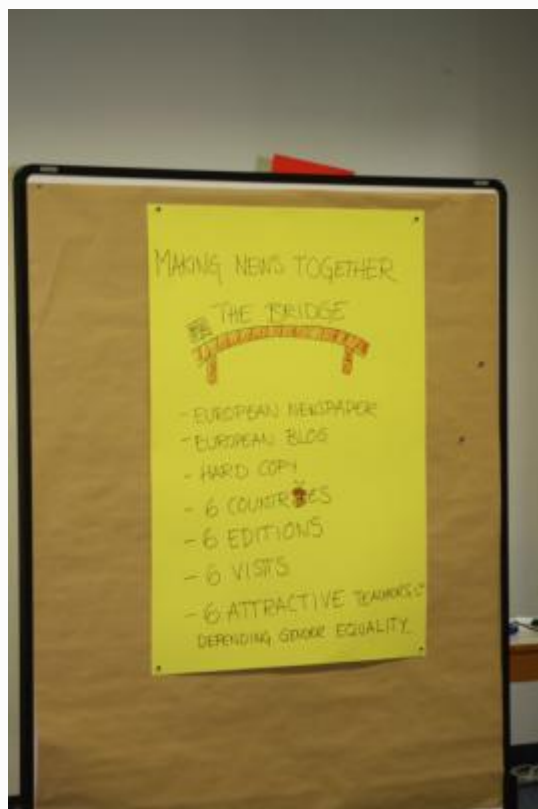 MAKING NEWS TOGETHER
THE BRIDGE
- EUROPEAN NEWSPAPER
- EUROPEAN BLOG
- HARD COPY
- 6 COUNTRIES
- 6 EDITIONS
- 6 VISITS
- 6 ATTRACTIVE TEACHERS
DEPENDING GENDER EQUALITY